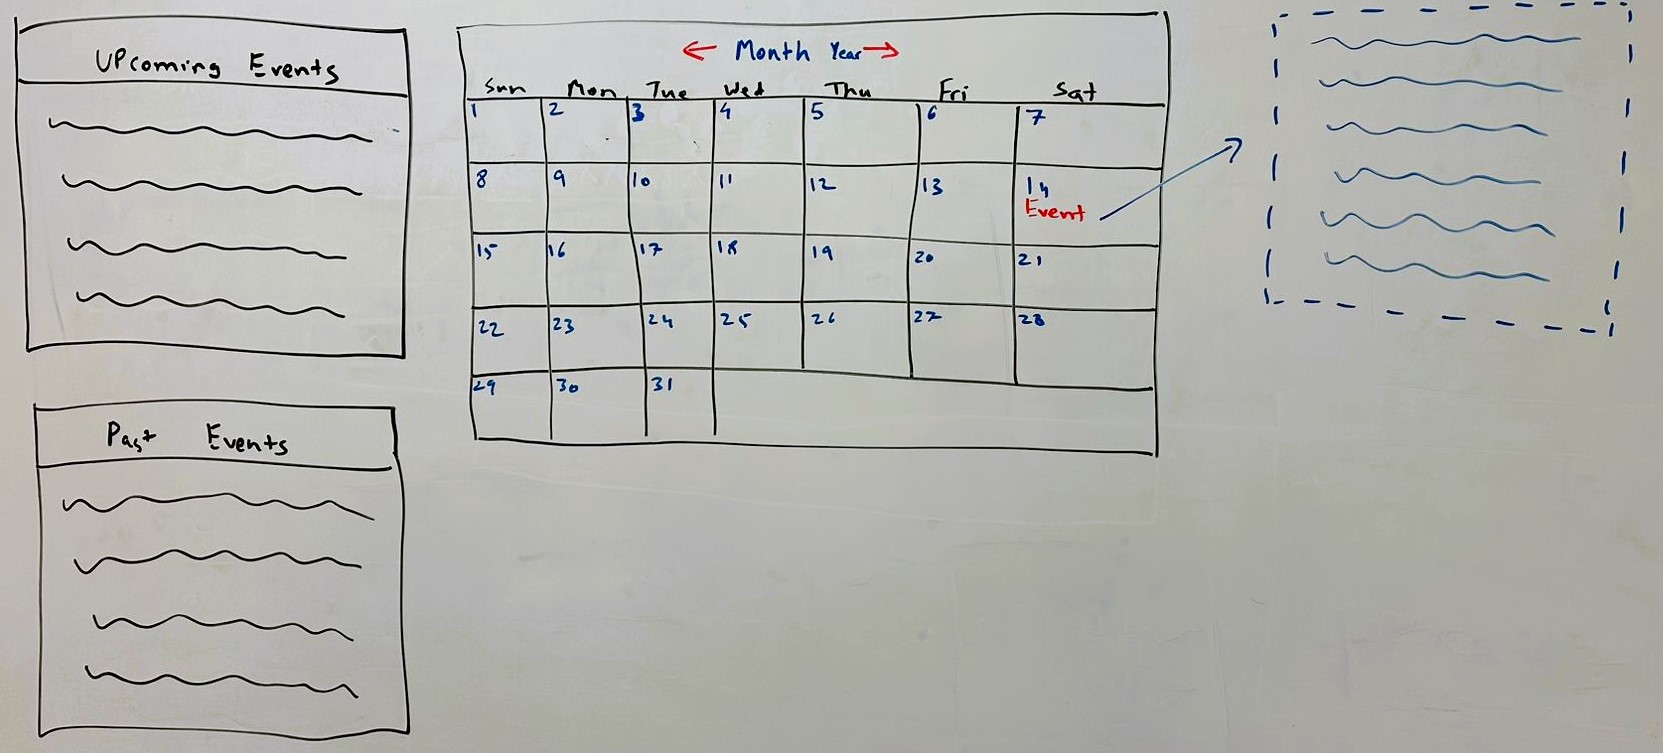 UPcoming Events
Past Events
← Month Year →
Sun Mon Tue Wed Thu Fri Sat
1 2 3 4 5 6 7
8 9 10 11 12 13 14
Event
15 16 17 18 19 20 21
22 23 24 25 26 27 28
29 30 31